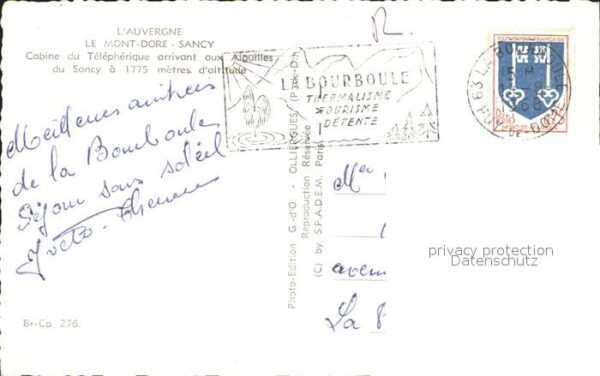 L'AUVERGNE
LE MONT-DORE - SANCY
Cabine du Téléphérique arrivant aux Aiguilles
du Sancy à 1775 mètres d'altitude
R.
LA BOURBOULE
THERMALISME
TOURISME
DÉTENTE
RÉPUBLIQUE FRANÇAISE
63 LA BOURBOULE
PUY DE DÔME
Meilleures amitiés
de la Bourboule
Séjour sans soleil
Photo-Edition G.-d'O. - OLLIERGUES (P.-de-D.)
Reproduction Réservée
(C) by S.P.A.D.E.M. Paris
Mer
aven
La
privacy protection
Datenschutz
Br-Cp 276.